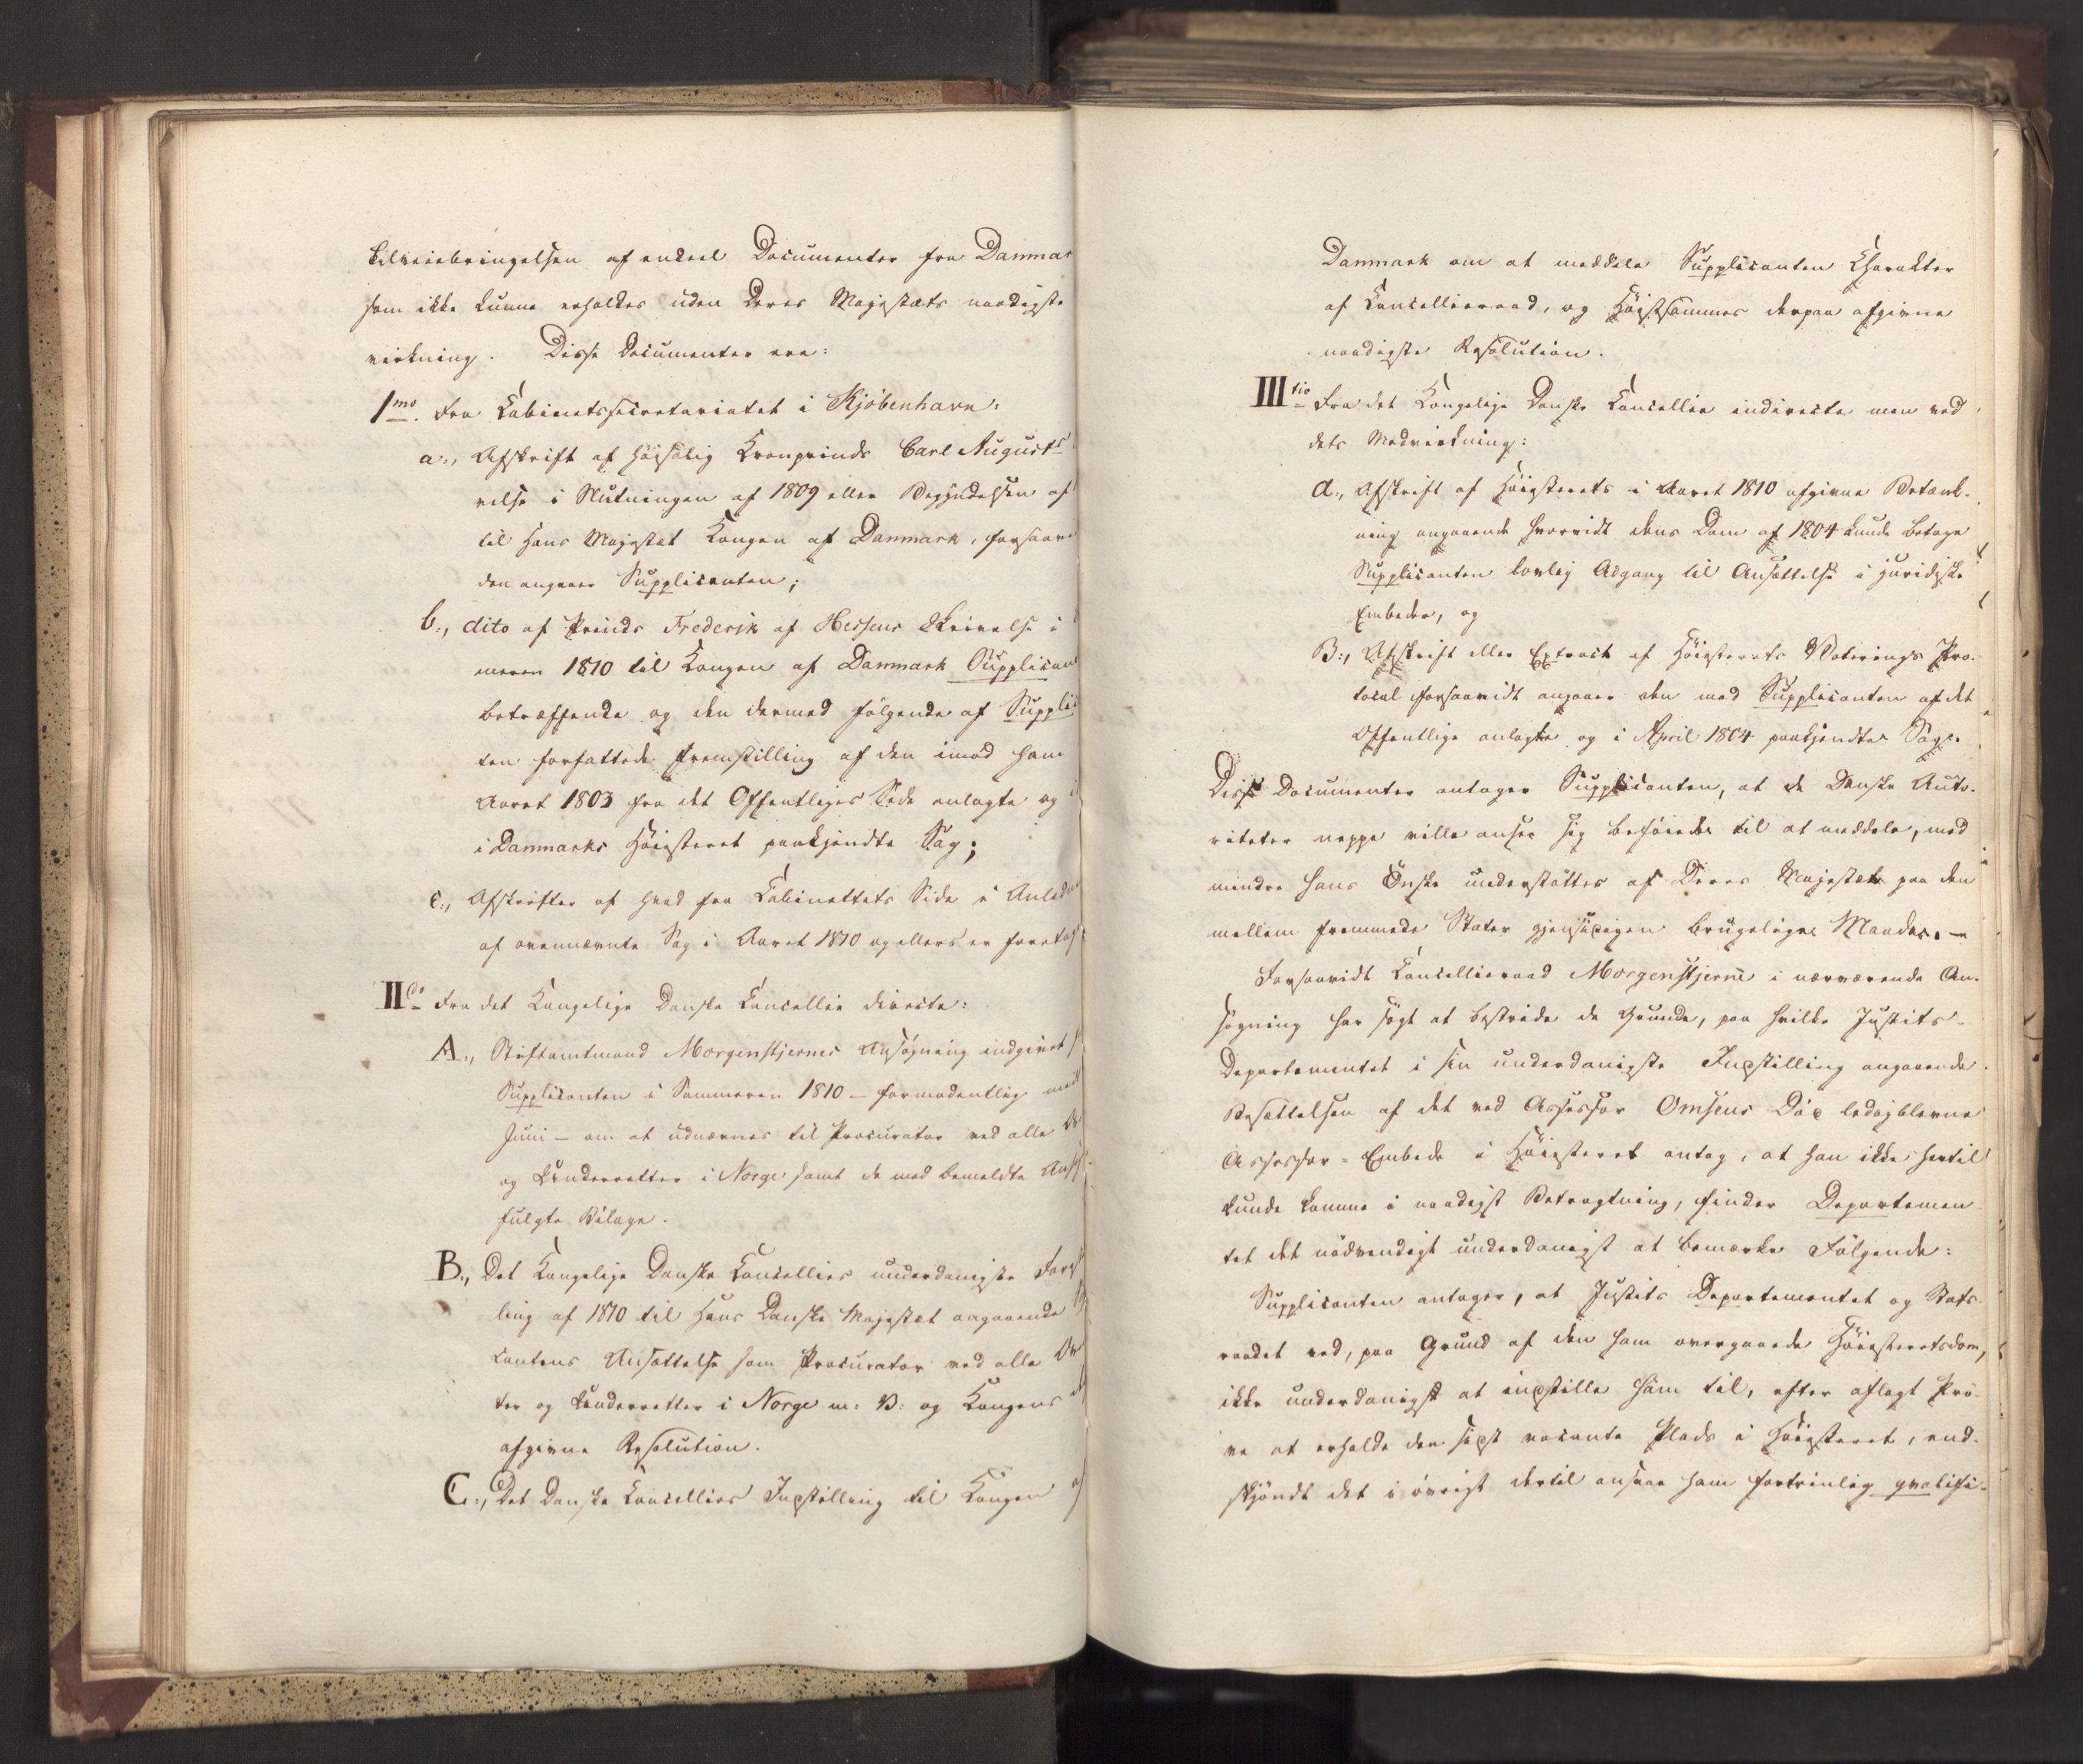 tilveiebringelsen af enkeel Documenter fra Danmar
som ikke kunne erholdes uden Deres Majestæts naadigste
virkning. Disse Documenter ere:
1mo. Fra Cabinetssecretariatet i Kjöbenhavn:
a., Afskrift af Höisalig Kronprinds Carl Augusts
velse i Slutningen af 1809 eller Begyndelsen af
til Hans Majestæt Kongen af Danmark, forsaavi
den angaaer Supplicanten;
b., dito af Prinds Frederik af Hessens Skrivelse i
meren 1810 til Kongen af Danmark Supplican
betræffende og den dermed fölgende af Supplic
ten forfattede Fremstilling af den imod ham
Aaret 1803 fra det Offentliges Side anlagte og
i Danmarks Höiesteret paakjendte Sag;
c., Afskrifter af hvad fra Cabinettets Side i Anled
af ovennævnte Sag i Aaret 1810 og ellers er foretag
IIdo Fra det Kongelige Danske Cancellie directe:
A., Stiftamtmand Morgenstjernes Ansögning indgivet f
Supplicanten i Sommeren 1810 – formodentlig med
Juni – om at udnævnes til Procurator ved alle Ov
og Underretter i Norge samt de med bemeldte Ans
fulgte Bilage.
B., Det Kongelige Danske Cancellies underdanigste Forest
ling af 1810 til Hans Danske Majestæt angaaende
cantens Ansættelse som Procurator ved alle Ov
ter og Underretter i Norge m: V: og Kongens
afgivne Resolution.
C., Det Danske Cancellies Indstilling til Kongen af
Danmark om at meddele Supplicanten Charakter
af Cancellieraad, og Höistsammes derpaa afgivne
naadigste Resolution.
IIItio Fra det Kongelige Danske Cancellie indirecte men ved
dets Medvirkning:
a., Afskrift af Höiesterets i Aaret 1810 afgivne Betænk-
ning angaaende hvorvidt dens Dom af 1804 kunde betage
Supplicanten lovlig Adgang til Ansættelse i juridiske
Embeder, og
B., Afskrift eller Extract af Höiesterets Voterings Pro-
tocol forsaavidt angaaer den mod Supplicanten af det
Offentlige anlagte og i April 1804 paakjendte Sag.
Disse Documenter antager Supplicanten, at de Danske Auto-
riteter neppe ville ansee sig beföiede til at meddele, med
mindre hans Önske understöttes af Deres Majestæt paa den
mellem fremmede Stater gjensidigen brugelige Maade. –
Forsaavidt Cancellieraad Morgenstjerne i nærværende An-
sögning har sögt at bestride de Grunde, paa hvilke Justits-
Departementet i sin underdanigste Indstilling angaaende
Besættelsen af det ved Assessor Omsens Död ledigblevne
Assessor-Embede i Höiesteret antog, at han ikke hertil
kunde komme i naadigst Betragtning, finder Departemen
tet det nödvendigt underdanigst at bemærke Fölgende:
Supplicanten antager, at Justits Departementet og Stats-
raadet ved, paa Grund af den ham overgaaede Höiesteretsdom,
ikke underdanigst at indstille ham til, efter aflagt Prö-
ve at erholde den sidst vacante Plads i Höiesteret, end-
skjöndt det i övrigt dertil ansaae ham fortrinlig qvalifi-